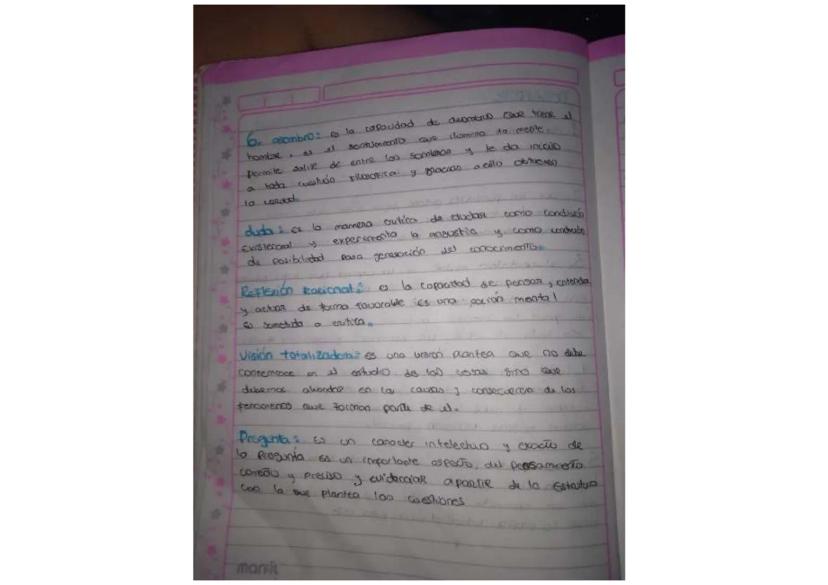 6. asombro: es la capacidad de asombro que tiene el
hombre, es el sentimiento que ilumina la mente.
permite salir de entre las sombras y le da inicio
a toda cuestión filosofica y gracias a ello
la verdad.
duda: es la manera critica de dudar como condición
existencial y experimenta la angustia y como condición
de posibilidad para generación del conocimiento.
Reflexión Racional: es la capacidad de pensar, entender
y actuar de forma favorable es una acción mental
es sometida a critica.
Visión totalizadora: es una visión plantea que no debe
en el estudio de las cosas sino que
debemos ahondar en la causa y consecuencia de los
fenomenos que forman parte de el.
Pregunta: es un caracter intelectivo y exacto de
la pregunta es un importante aspecto del pensamiento
correcto y preciso y evidenciar apartir de la estructura
con la que plantea las cuestiones